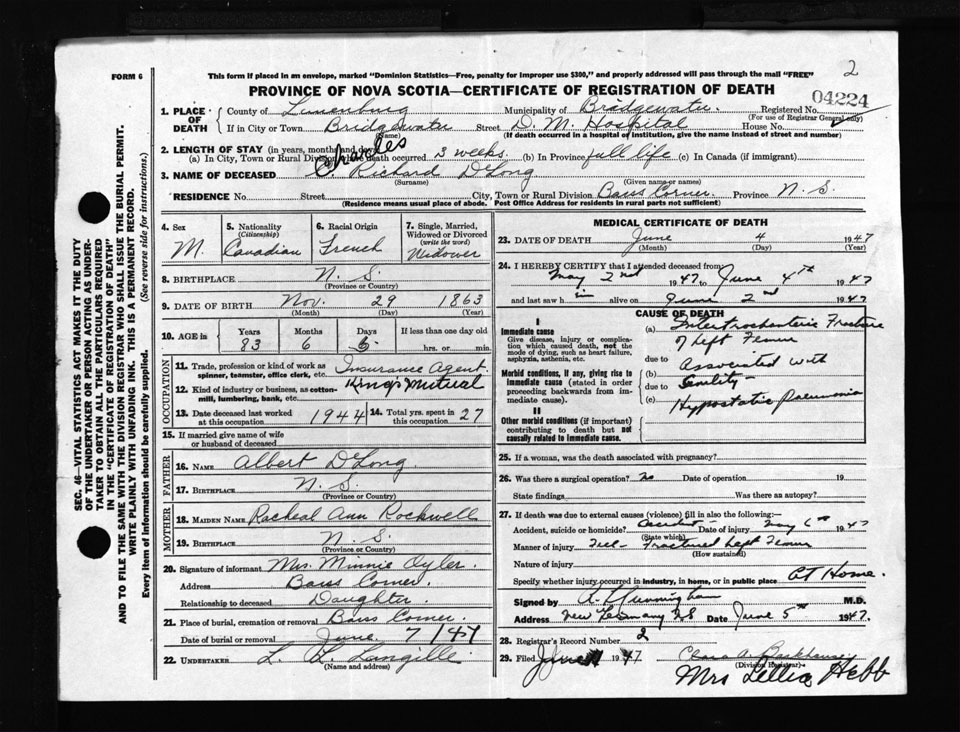 FORM 6
This form if placed in an envelope, marked "Dominion Statistics—Free, penalty for improper use $300," and properly addressed will pass through the mail "FREE"
2
PROVINCE OF NOVA SCOTIA—CERTIFICATE OF REGISTRATION OF DEATH
04224
1. PLACE OF DEATH
County of Lunenburg Municipality of Bridgewater. Registered No.
(For use of Registrar General only)
If in City or Town Bridgewater Street D. M. Hospital House No.
(If death occurred in a hospital or institution, give the name instead of street and number)
2. LENGTH OF STAY (in years, months and days)
(a) In City, Town or Rural Division where death occurred 3 weeks. (b) In Province full life (c) In Canada (if immigrant)
Charles
3. NAME OF DECEASED Richard DeLong
(Surname) (Given name or names)
RESIDENCE No. Street City, Town or Rural Division Barss Corner. Province N. S.
(Residence means usual place of abode. Post Office Address for residents in rural parts not sufficient)
4. Sex M.
5. Nationality (Citizenship) Canadian
6. Racial Origin French
7. Single, Married, Widowed or Divorced (write the word) Widower
8. BIRTHPLACE N. S.
(Province or Country)
9. DATE OF BIRTH Nov. 29 1863
(Month) (Day) (Year)
10. AGE in Years Months Days If less than one day old
83 6 5 hrs. or min.
OCCUPATION
11. Trade, profession or kind of work as spinner, teamster, office clerk, etc. Insurance Agent.
12. Kind of industry or business, as cotton-mill, lumbering, bank, etc. King's Mutual
13. Date deceased last worked at this occupation 1944 14. Total yrs. spent in this occupation 27
15. If married give name of wife or husband of deceased
FATHER
16. NAME Albert DeLong.
17. BIRTHPLACE N. S.
(Province or Country)
MOTHER
18. MAIDEN NAME Racheal Ann Rockwell
19. BIRTHPLACE N. S.
(Province or Country)
20. Signature of informant Mrs. Minnie Oyler.
Address Barss Corner.
Relationship to deceased Daughter.
21. Place of burial, cremation or removal Barss Corner.
Date of burial or removal June. 7/47
22. UNDERTAKER L. L. Langille
(Name and address)
MEDICAL CERTIFICATE OF DEATH
23. DATE OF DEATH June 4 1947
(Month) (Day) (Year)
24. I HEREBY CERTIFY that I attended deceased from
May 2nd 1947 to June 4th 1947
and last saw him alive on June 2nd 1947
CAUSE OF DEATH
I
Immediate cause
Give disease, injury or complication which caused death, not the mode of dying, such as heart failure, asphyxia, asthenia, etc.
(a) Intertrochanteric Fracture
of Left Femur
due to Associated with
Morbid conditions, if any, giving rise to immediate cause (stated in order proceeding backwards from immediate cause).
(b) Senility-
due to
(c) Hypostatic Pneumonia
II
Other morbid conditions (if important) contributing to death but not causally related to immediate cause.
25. If a woman, was the death associated with pregnancy?
26. Was there a surgical operation? No Date of operation 19
State findings Was there an autopsy?
27. If death was due to external causes (violence) fill in also the following:—
Accident, suicide or homicide? Accident- Date of injury May 6th 1947
(State which)
Manner of injury Fell- Fractured Left Femur
(How sustained)
Nature of injury
Specify whether injury occurred in industry, in home, or in public place At Home.
Signed by A. Cunningham M.D.
Address New Germany NS Date June 5th 1947.
28. Registrar's Record Number 2
29. Filed June 1947 Clara A. Barkhouse
(Division Registrar)
Mrs Lellia Hebb
SEC. 46—VITAL STATISTICS ACT MAKES IT THE DUTY
OF THE UNDERTAKER OR PERSON ACTING AS UNDER-
TAKER TO OBTAIN ALL THE PARTICULARS REQUIRED
IN THE "CERTIFICATE OF REGISTRATION OF DEATH"
AND TO FILE THE SAME WITH THE DIVISION REGISTRAR WHO SHALL ISSUE THE BURIAL PERMIT.
WRITE PLAINLY WITH UNFADING INK. THIS IS A PERMANENT RECORD.
Every item of information should be carefully supplied. (See reverse side for instructions.)